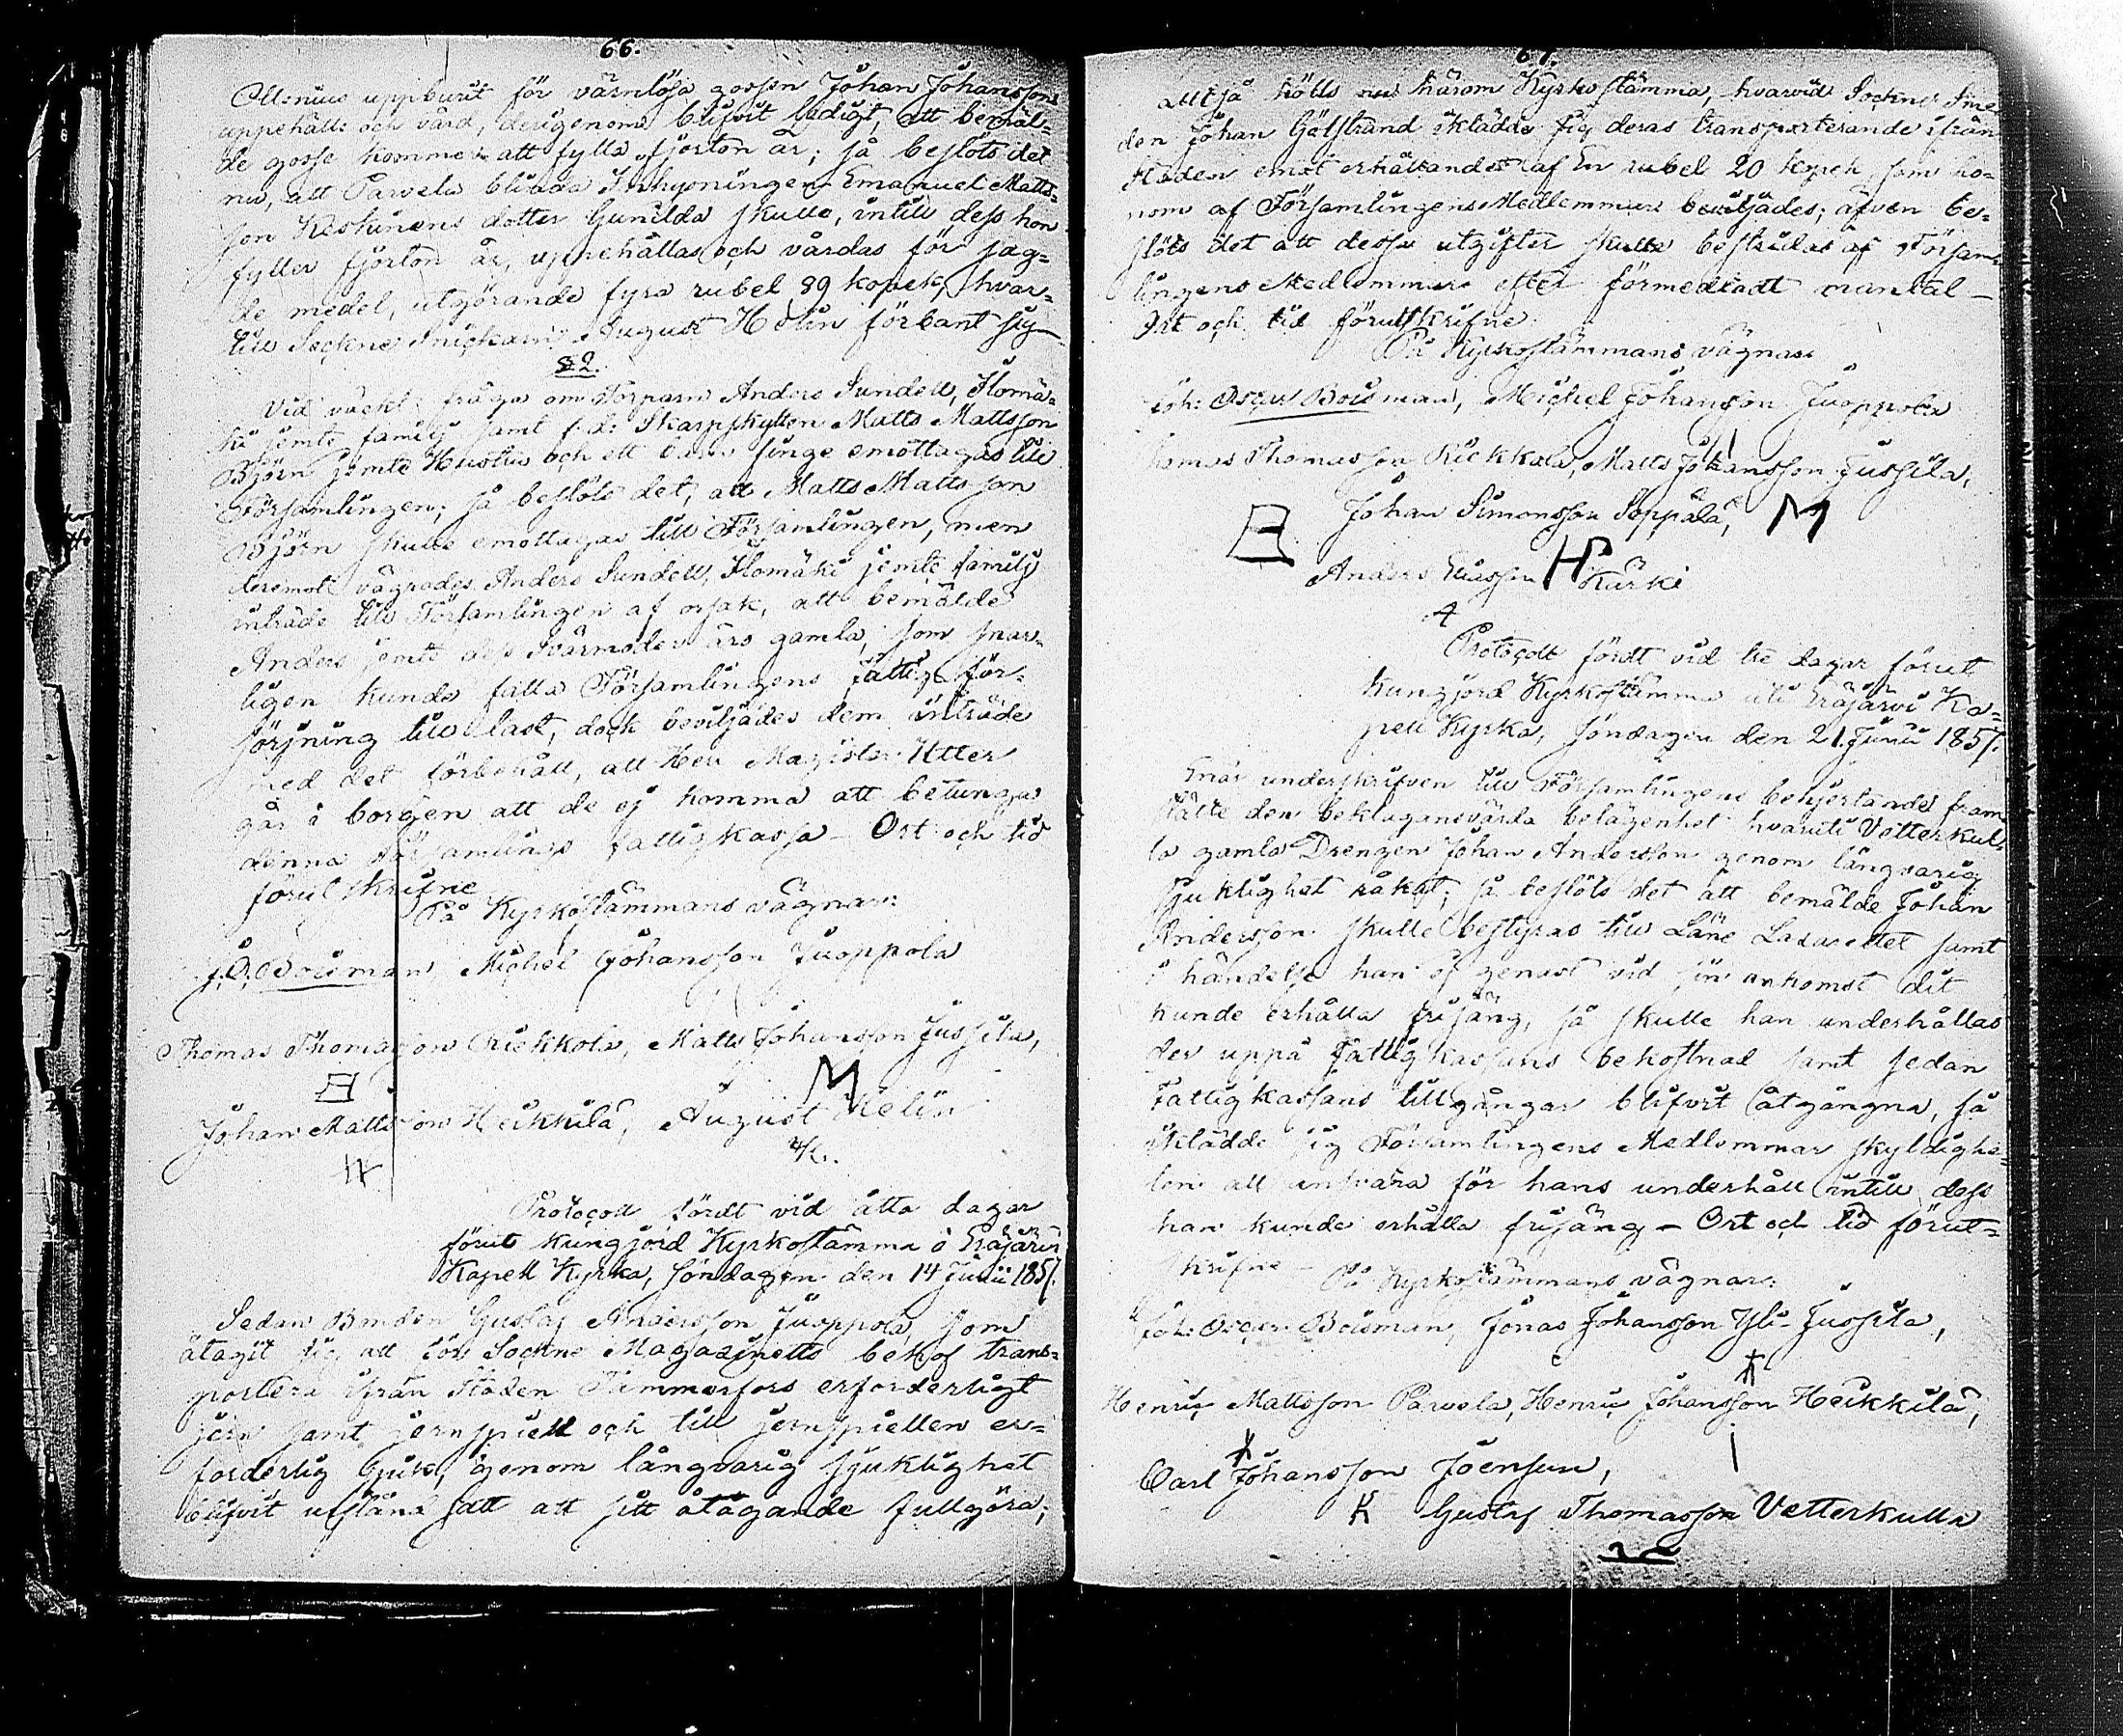 66.
Ollenius uppburit för värnlösa gossen Johan Johanssons
uppehälle och vård, derigenom blifvit ledigt, att bemäl-
de gosse kommer att fylla fjorton år; så beslöts det
nu, att Parvela blinda Inhysningen Emanuel Matts-
son Keskinens dotter Gunilda skulle, intill dess hon
fyller fjorton år, uppehållas och vårdas för sag-
de medel, utgörande fyra rubel 89 kopek, hvar-
till Sockne Snickaren August Helin förbant sig
§ 2.
Vid väckt fråga om Torparn Anders Sundell, Ilomä-
ki jemte familj samt f.d. Skarpskytten Matts Mattsson
Björn jemte Hustru och ett barn finge emottagas till
Församlingen; så beslöts det, att Matts Mattsson
Björn skulle emottagas till Församlingen, men
deremot vägrades Anders Sundell, Ilomäki jemte familj
inträde till Församlingen af orsak, att bemälde
Anders jemte dess Svärmoder äro gamla, som snar-
ligen kunde falla Församlingens fattig för-
sörjning till last, dock beviljades dem inträde
med det förbehåll, att Herr Magister Utter
går i borgen att de ej komma att betunga
denna Församlings fattigkassa - Ort och tid
förut skrifne
På Kyrkostämmans vägnar:
J. O. Boisman Michel Johansson Juoppola
Thomas Thomasson Riekkola, Matts Johansson Jussila,
M
Johan Mattsson Heikkilä, August Helin
Protocoll fördt vid åtta dagar
förut kungjord Kyrkostämma i Eräjärvi
Kapell Kyrka, söndagen den 14 Junii 1857.
Sedan Bonden Gustaf Andersson Juoppola, som
åtagit sig att för Sockne Magazinetts behof trans-
portera ifrån Staden Tammerfors erforderligt
jern samt jernspiell och till jernspiellen er-
forderlig bjuk, genom långvarig sjuklighet
blifvit utstånd satt att sitt åtagande fullgöra;
67.
Altså hölls nu härom Kyrkostämma, hvarvid Sockne Sme-
den Johan Gölstrand iklädde sig deras transporterande ifrån
staden emot erhållandet af En rubel 20 kopek, som ho-
nom af Församlingens Medlemmar beviljades; äfven be-
slöts det att dessa utgifter skulle bestridas af Försam-
lingens Medlemmar efter förmedladt mantal -
Ort och tid förutskrifne
På Kyrkostämmans vägnar
Joh: Oscar Boisman, Michel Johansson Juoppola
Thomas Thomasson Riekkala, Matts Johansson Jussila,
Johan Simonsson Soppala, M
Anders Eliasson Kärki
Protocoll fördt vid tre dagar förut
kungjord Kyrkostämma uti Eräjärvi Ka-
pell Kyrka, söndagen den 21 Junii 1857.
Enär underskrifven till Församlingens behjertande fram
stälte den beklagansvärda belägenhet hvaruti Vetterkul-
la gamla Drengen Johan Andersson genom långvarig
sjuklighet råkat; så beslöts det att bemälde Johan
Andersson skulle bestyras till Läns Lazarettet samt
i händelse han ej genast vid sin ankomst dit
kunde erhålla frisäng, så skulle han underhållas
der uppå Fattigkassans bekostnad samt sedan
Fattigkassans tillgångar blifvit åtgångna, så
iklädde sig Församlingens Medlemmar skyldighe-
ten att ansvara för hans underhåll intill dess
han kunde erhålla frisäng - Ort och tid förut-
skrifne - På Kyrkostämmans vägnar:
Joh: Oscar Boisman, Jonas Johansson Yli-Jussila,
Henric Mattsson Parvela, Henric Johansson Heikkilä,
Carl Johansson Joensuu,
Gustaf Thomasson Vetterkulla